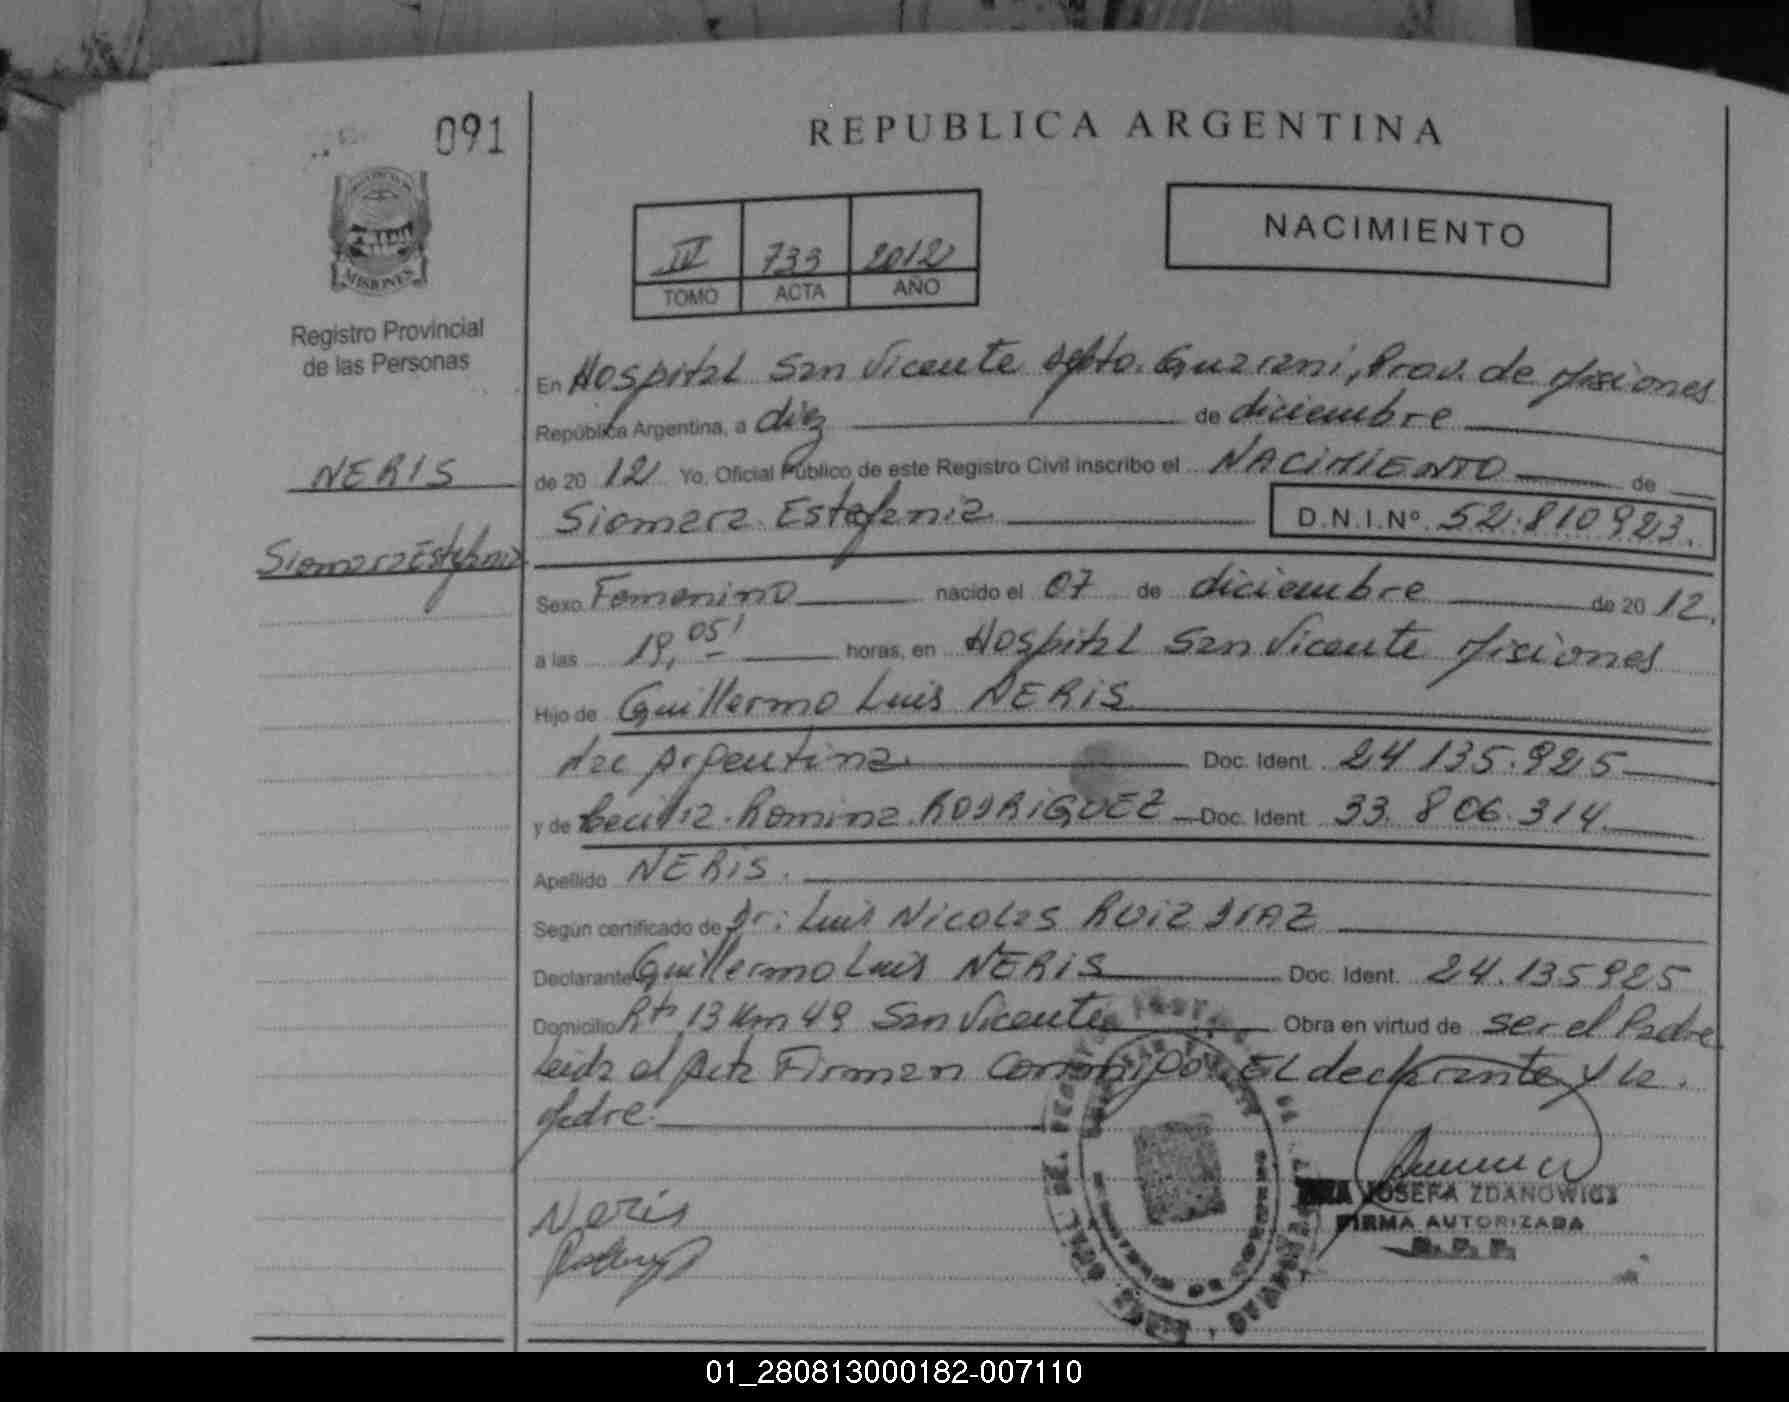 091
REPUBLICA ARGENTINA
NACIMIENTO
IV 733 2012
TOMO ACTA AÑO
MISIONES
Registro Provincial
de las Personas
En Hospital San Vicente Dpto. Guarani, Prov. de Misiones
República Argentina, a diez de diciembre
NERIS
de 20 12 Yo, Oficial Público de este Registro Civil inscribo el NACIMIENTO de
Siomara Estefania D.N.I.Nº 52.810923.
Siomara Estefania
Sexo Femenino nacido el 07 de diciembre de 20 12.
a las 19,05' horas, en Hospital San Vicente Misiones
Hijo de Guillermo Luis NERIS
Nac Argentina Doc. Ident. 24.135.925
y de Cecilia Romina RODRIGUEZ Doc. Ident. 33.806.314
Apellido NERIS.
Según certificado de Dr: Luis Nicolas RUIZ DIAZ
Declarante Guillermo Luis NERIS Doc. Ident. 24.135925
Domicilio Rta 13 Km 49 San Vicente Obra en virtud de ser el Padre
Leida el Acta Firman Conmigo El declarante y la
Madre.
Neris
JOSEFA ZDANOWICZ
FIRMA AUTORIZADA
R.P.P.
01_280813000182-007110